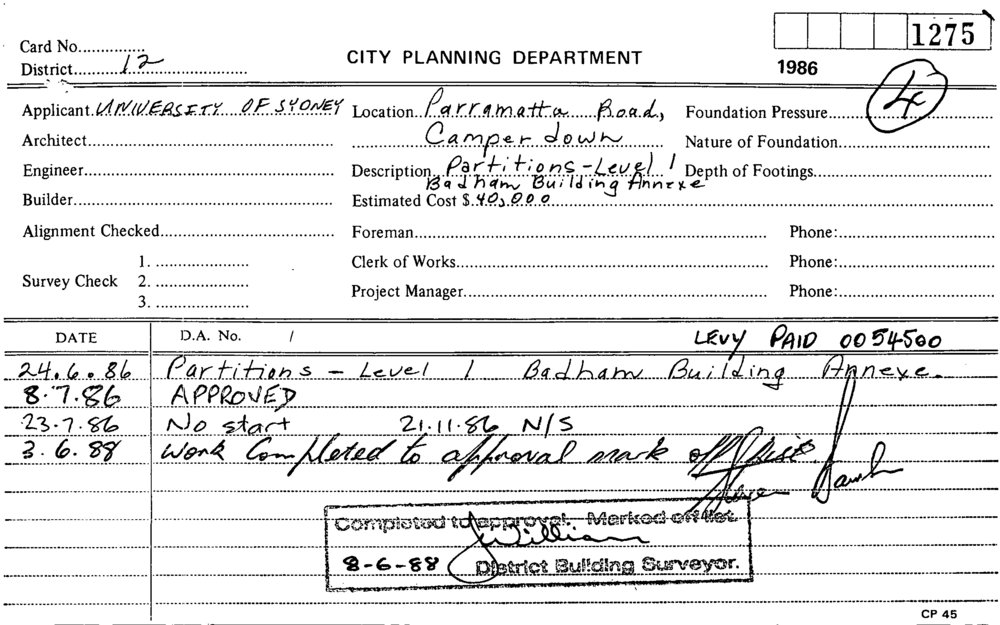 1275
Card No...............
CITY PLANNING DEPARTMENT
District 12
1986
4
Applicant UNIVERSITY OF SYDNEY Location Parramatta Road, Foundation Pressure
Architect Camperdown Nature of Foundation
Engineer Description Partitions - Level 1 Depth of Footings
Badham Building Annexe
Builder Estimated Cost $ 40,000
Alignment Checked Foreman Phone:
1. Clerk of Works Phone:
Survey Check 2.
Project Manager Phone:
3.
DATE D.A. No. / LEVY PAID 0054500
24.6.86 Partitions - Level 1 Badham Building Annexe.
8.7.86 APPROVED
23.7.86 No start 21.11.86 N/S
3.6.88 Work Completed to approval mark off list
Completed to approval. Marked off list.
8-6-88 District Building Surveyor.
CP 45